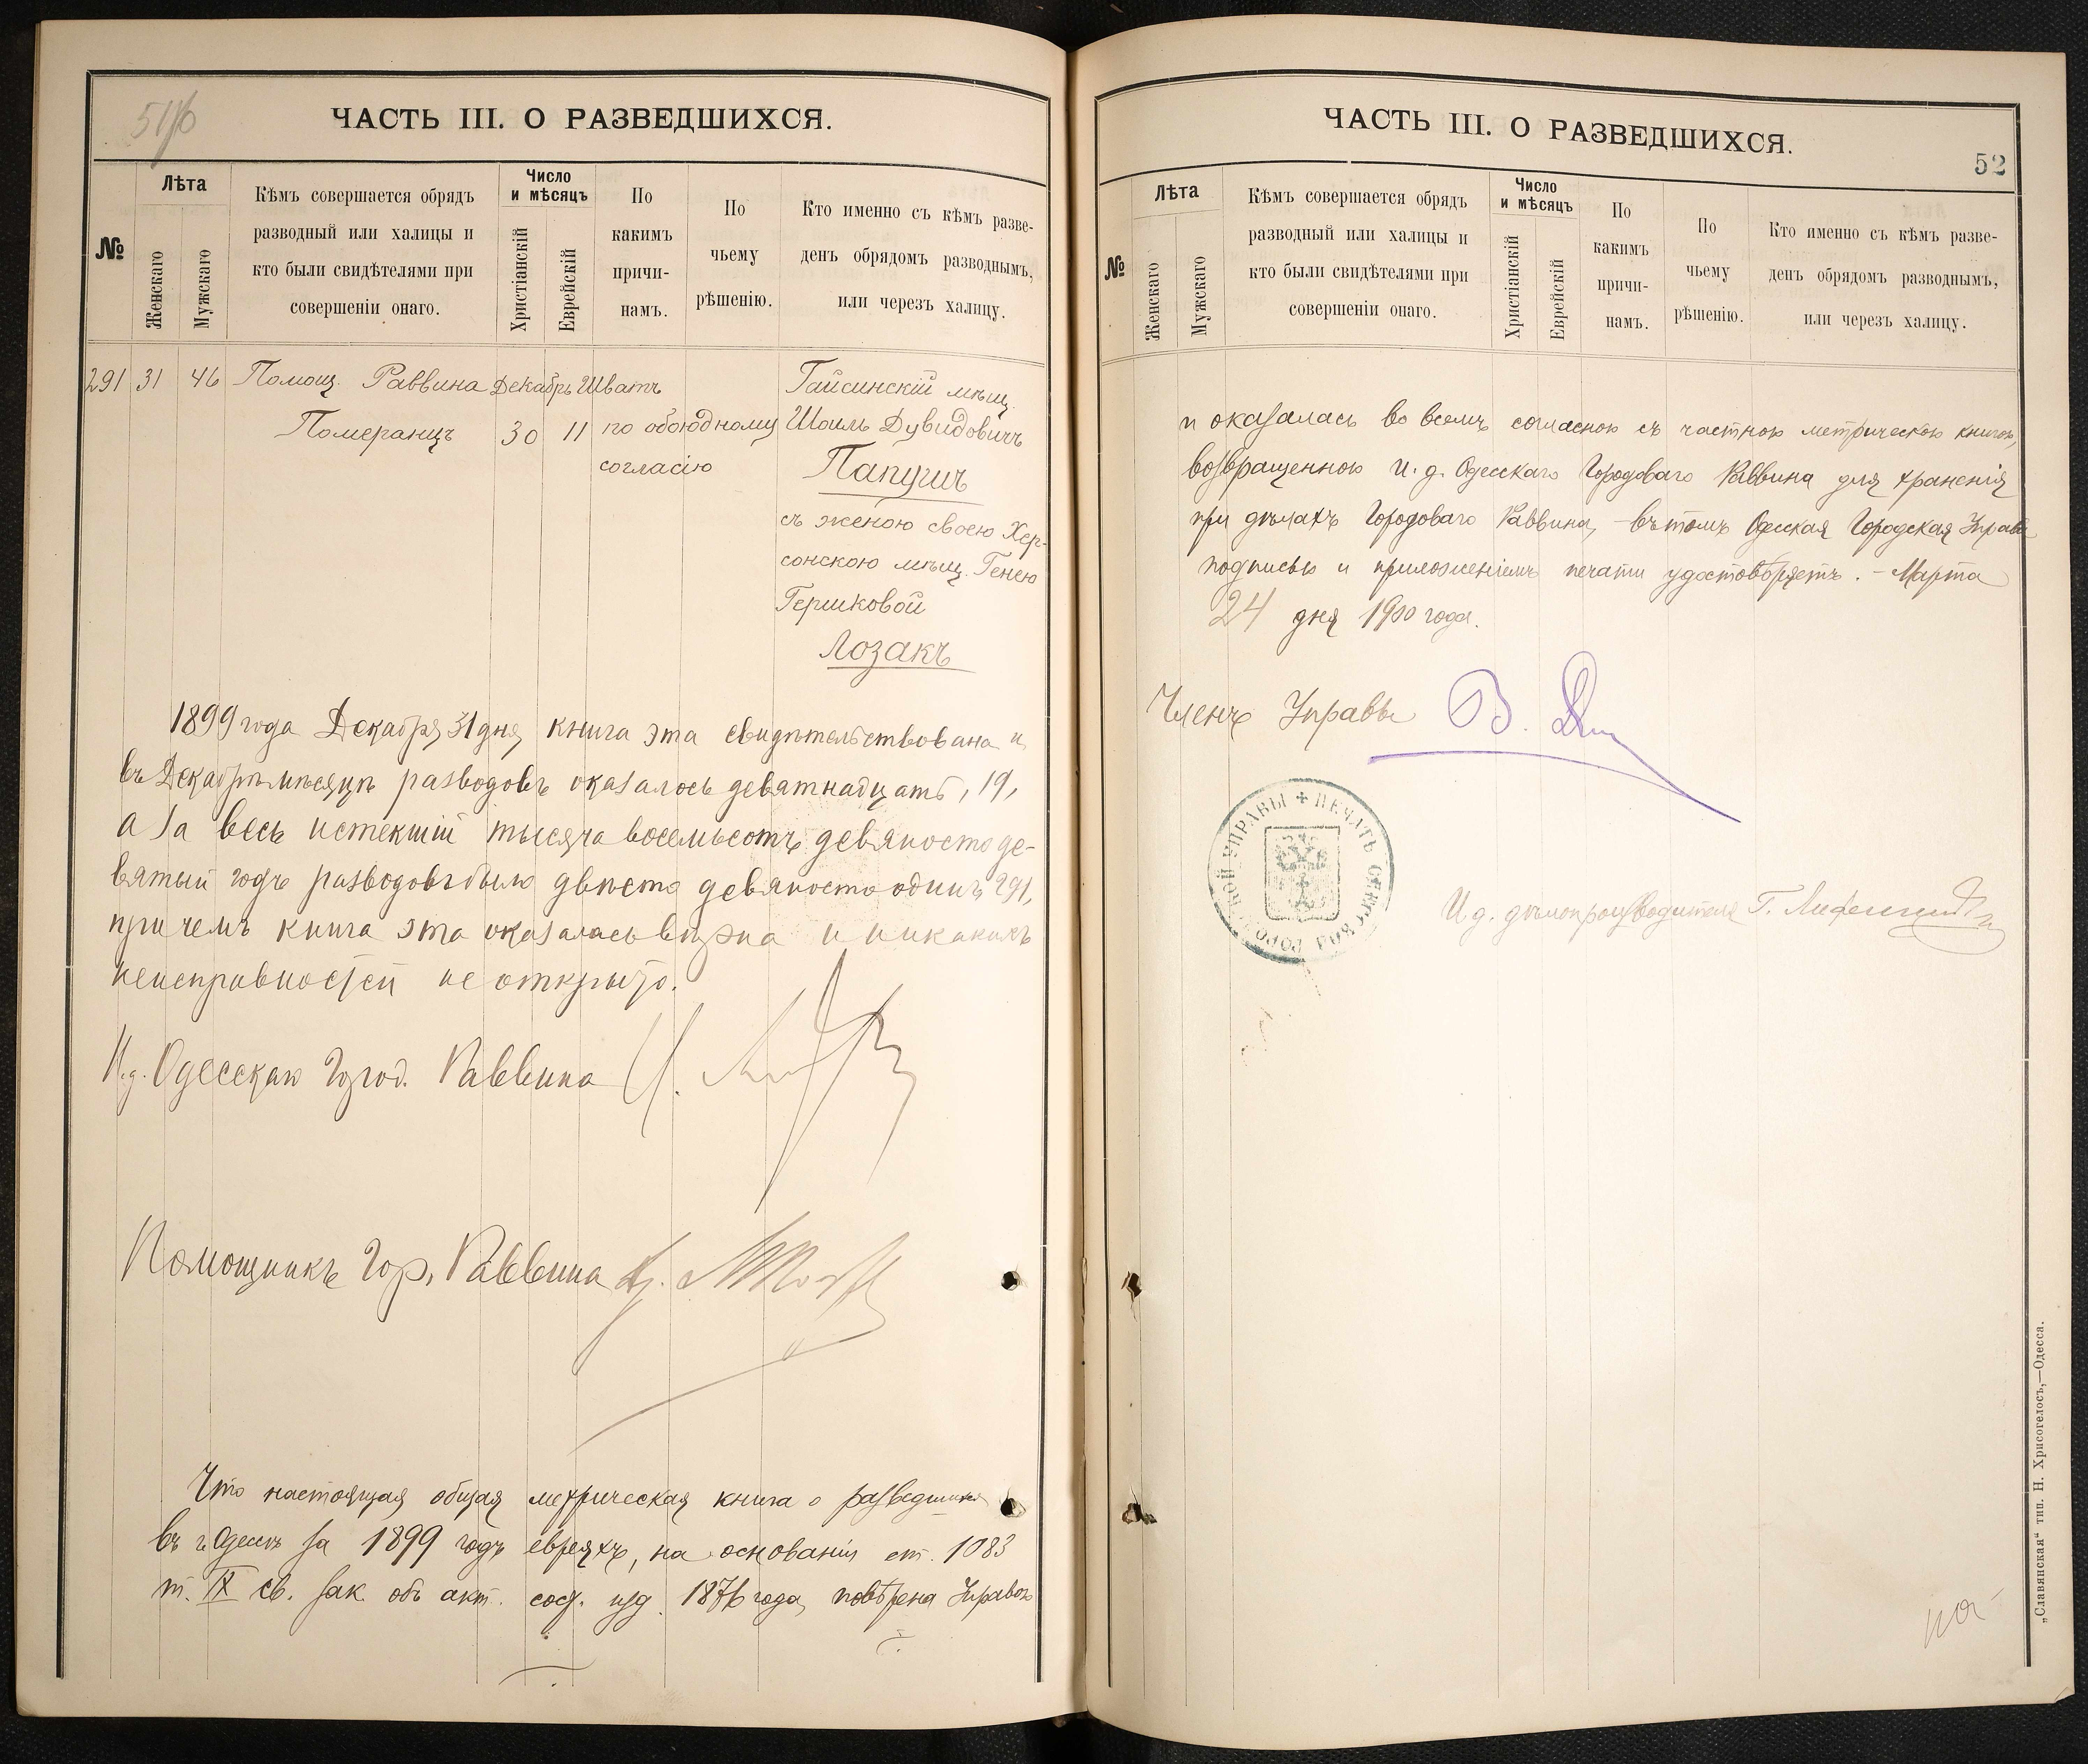 ЧАСТЬ III. О РАЗВЕДШИХСЯ.
№
Лѣта
Женскаго
Мужскаго
Кѣмъ совершается обрядъ
разводный или халицы и
кто были свидѣтелями при
совершеніи онаго.
Число
и мѣсяцъ
Христіанскій
Еврейскій
По
какимъ
причи-
намъ.
По
чьему
рѣшенію.
Кто именно съ кѣмъ разве-
денъ обрядомъ разводнымъ,
или черезъ халицу.
291 31 46 Помощ. Раввина Декабрь Шватъ Гайсинскій мѣщ.
Померанцъ 30 11 по обоюдному Шоиль Дувидовичъ
согласію Папушъ
съ женою своею Хер-
сонскою мѣщ. Генею
Гершковой
Лозакъ
1899 года Декабря 31 дня книга эта свидѣтельствована и
въ Декабрѣ мѣсяцѣ разводовъ оказалось девятнадцать, 19,
а за весь истекшій тысяча восемьсотъ девяносто де-
вятый годъ разводовъ было двѣсти девяносто одинъ 291,
при чемъ книга эта оказалась вѣрна и никакихъ
неисправностей не открыто.
И.д. Одесскаго Город. Раввина
Помощникъ Гор. Раввина
Что настоящая общая метрическая книга о разведшихся
въ г. Одессѣ за 1899 годъ евреяхъ, на основаніи ст. 1083
т. IX св. зак. объ акт. сост. изд. 1876 года, повѣрена Управою
ЧАСТЬ III. О РАЗВЕДШИХСЯ.
52
№
Лѣта
Женскаго
Мужскаго
Кѣмъ совершается обрядъ
разводный или халицы и
кто были свидѣтелями при
совершеніи онаго.
Число
и мѣсяцъ
Христіанскій
Еврейскій
По
какимъ
причи-
намъ.
По
чьему
рѣшенію.
Кто именно съ кѣмъ разве-
денъ обрядомъ разводнымъ,
или черезъ халицу.
и оказалась во всемъ согласною съ частною метрическою книгою,
возвращенною И. д. Одесскаго Городоваго Раввина для храненія
при дѣлахъ Городоваго Раввина, – въ томъ Одесская Городская Управа
подписью и приложеніемъ печати удостовѣряетъ. – Марта
24 дня 1900 года.
Членъ Управы В.
ПЕЧАТЬ ОДЕССКОЙ ГОРОДСКОЙ УПРАВЫ
И д. дѣлопроизводителя Г.
„Славянская“ тип. Н. Хрисогелосъ,—Одесса.